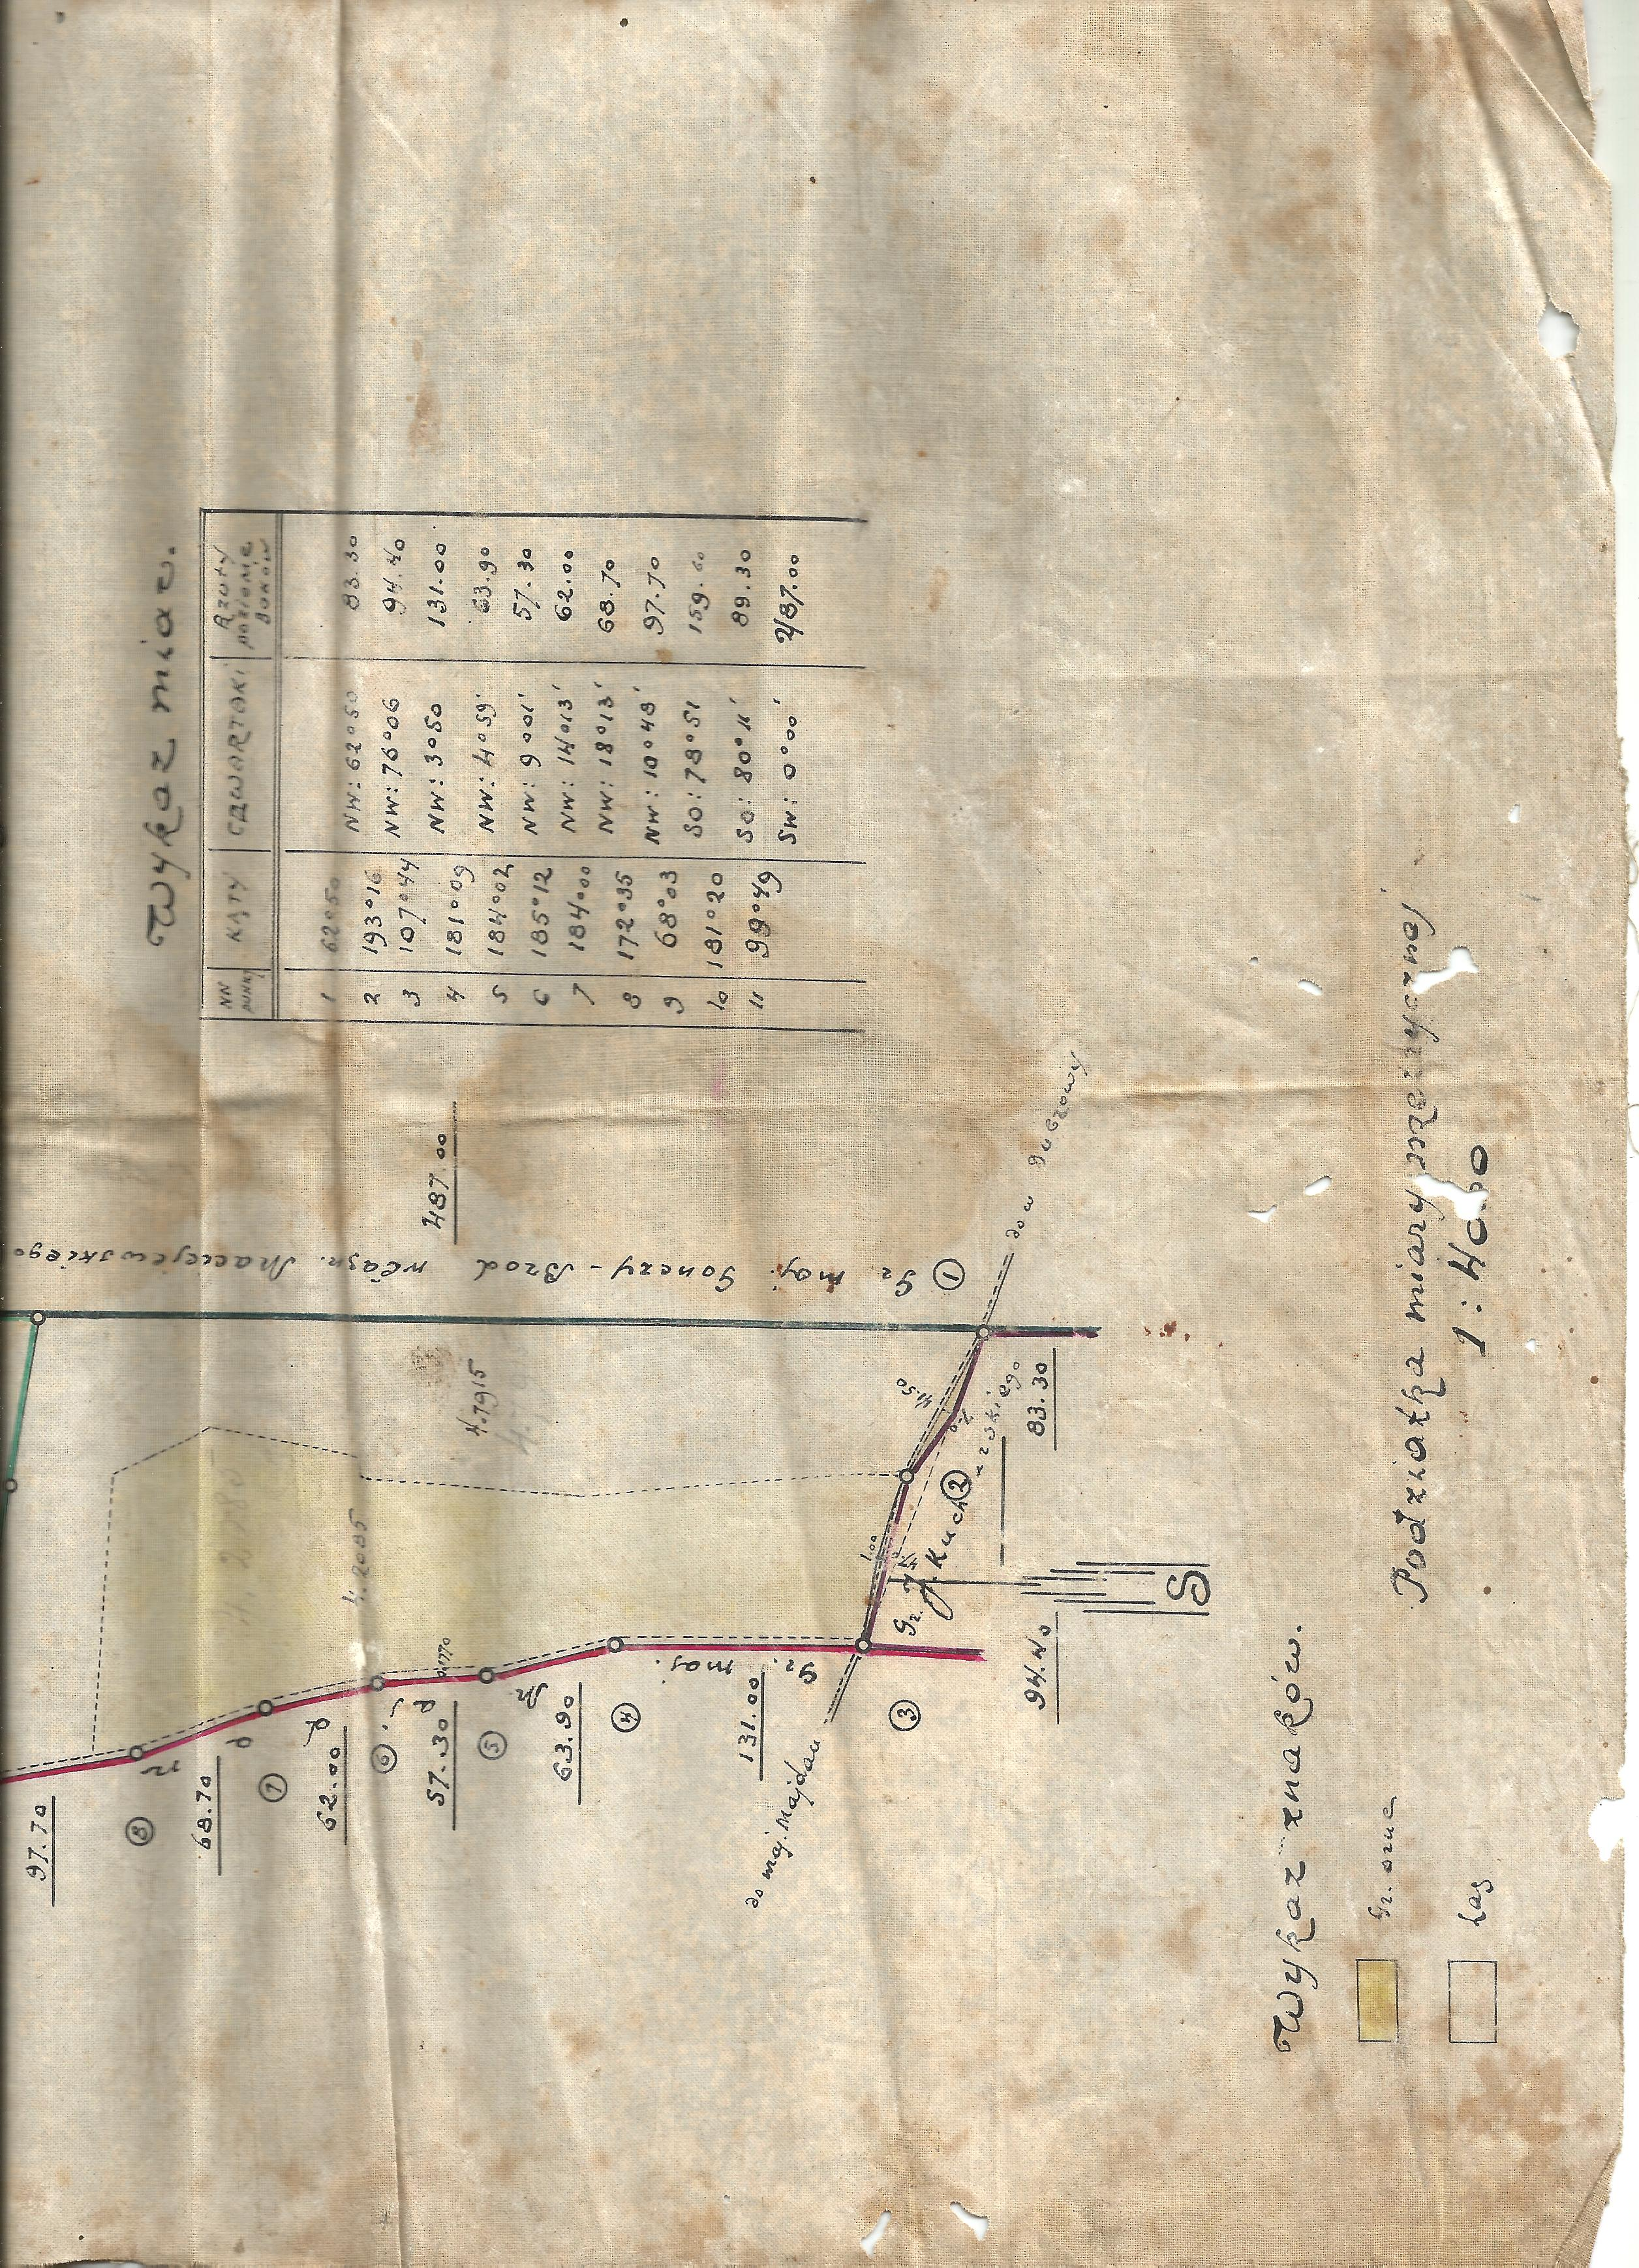 Wykaz miar.
NN punkt KĄTY CZWARTAKI RZUTY POZIOME BOKÓW
1 62°50
NW: 62°50 83.30
2 193°16 NW: 76°06 94.40
3 107°44 NW: 3°50 131.00
4 181°09 NW: 4°59' 63.90
5 184°02 NW: 9°01' 57.30
6 185°12 NW: 14°13' 62.00
7 184°00 NW: 18°13' 68.70
8 172°35 NW: 10°48' 97.70
9 68°03 SO: 78°51 159.60
10 181°20 SO: 80°11' 89.30
11 99°49 SW: 0°00' 487.00
487.00
Gr. maj. Gonczy-Brod własn. Maciejewskiego
1
4.7915
4.2085
do w
83.30
4.50
2
1.00
Gr. J.
94.40
S
3
do maj. Majdan
Gr. maj.
131.00
4
63.90
5
57.30
0.1770
6
62.00
7
68.70
8
97.70
Wykaz znaków.
Gr. orne
Las
Podziałka miary metrycznej
1:4000